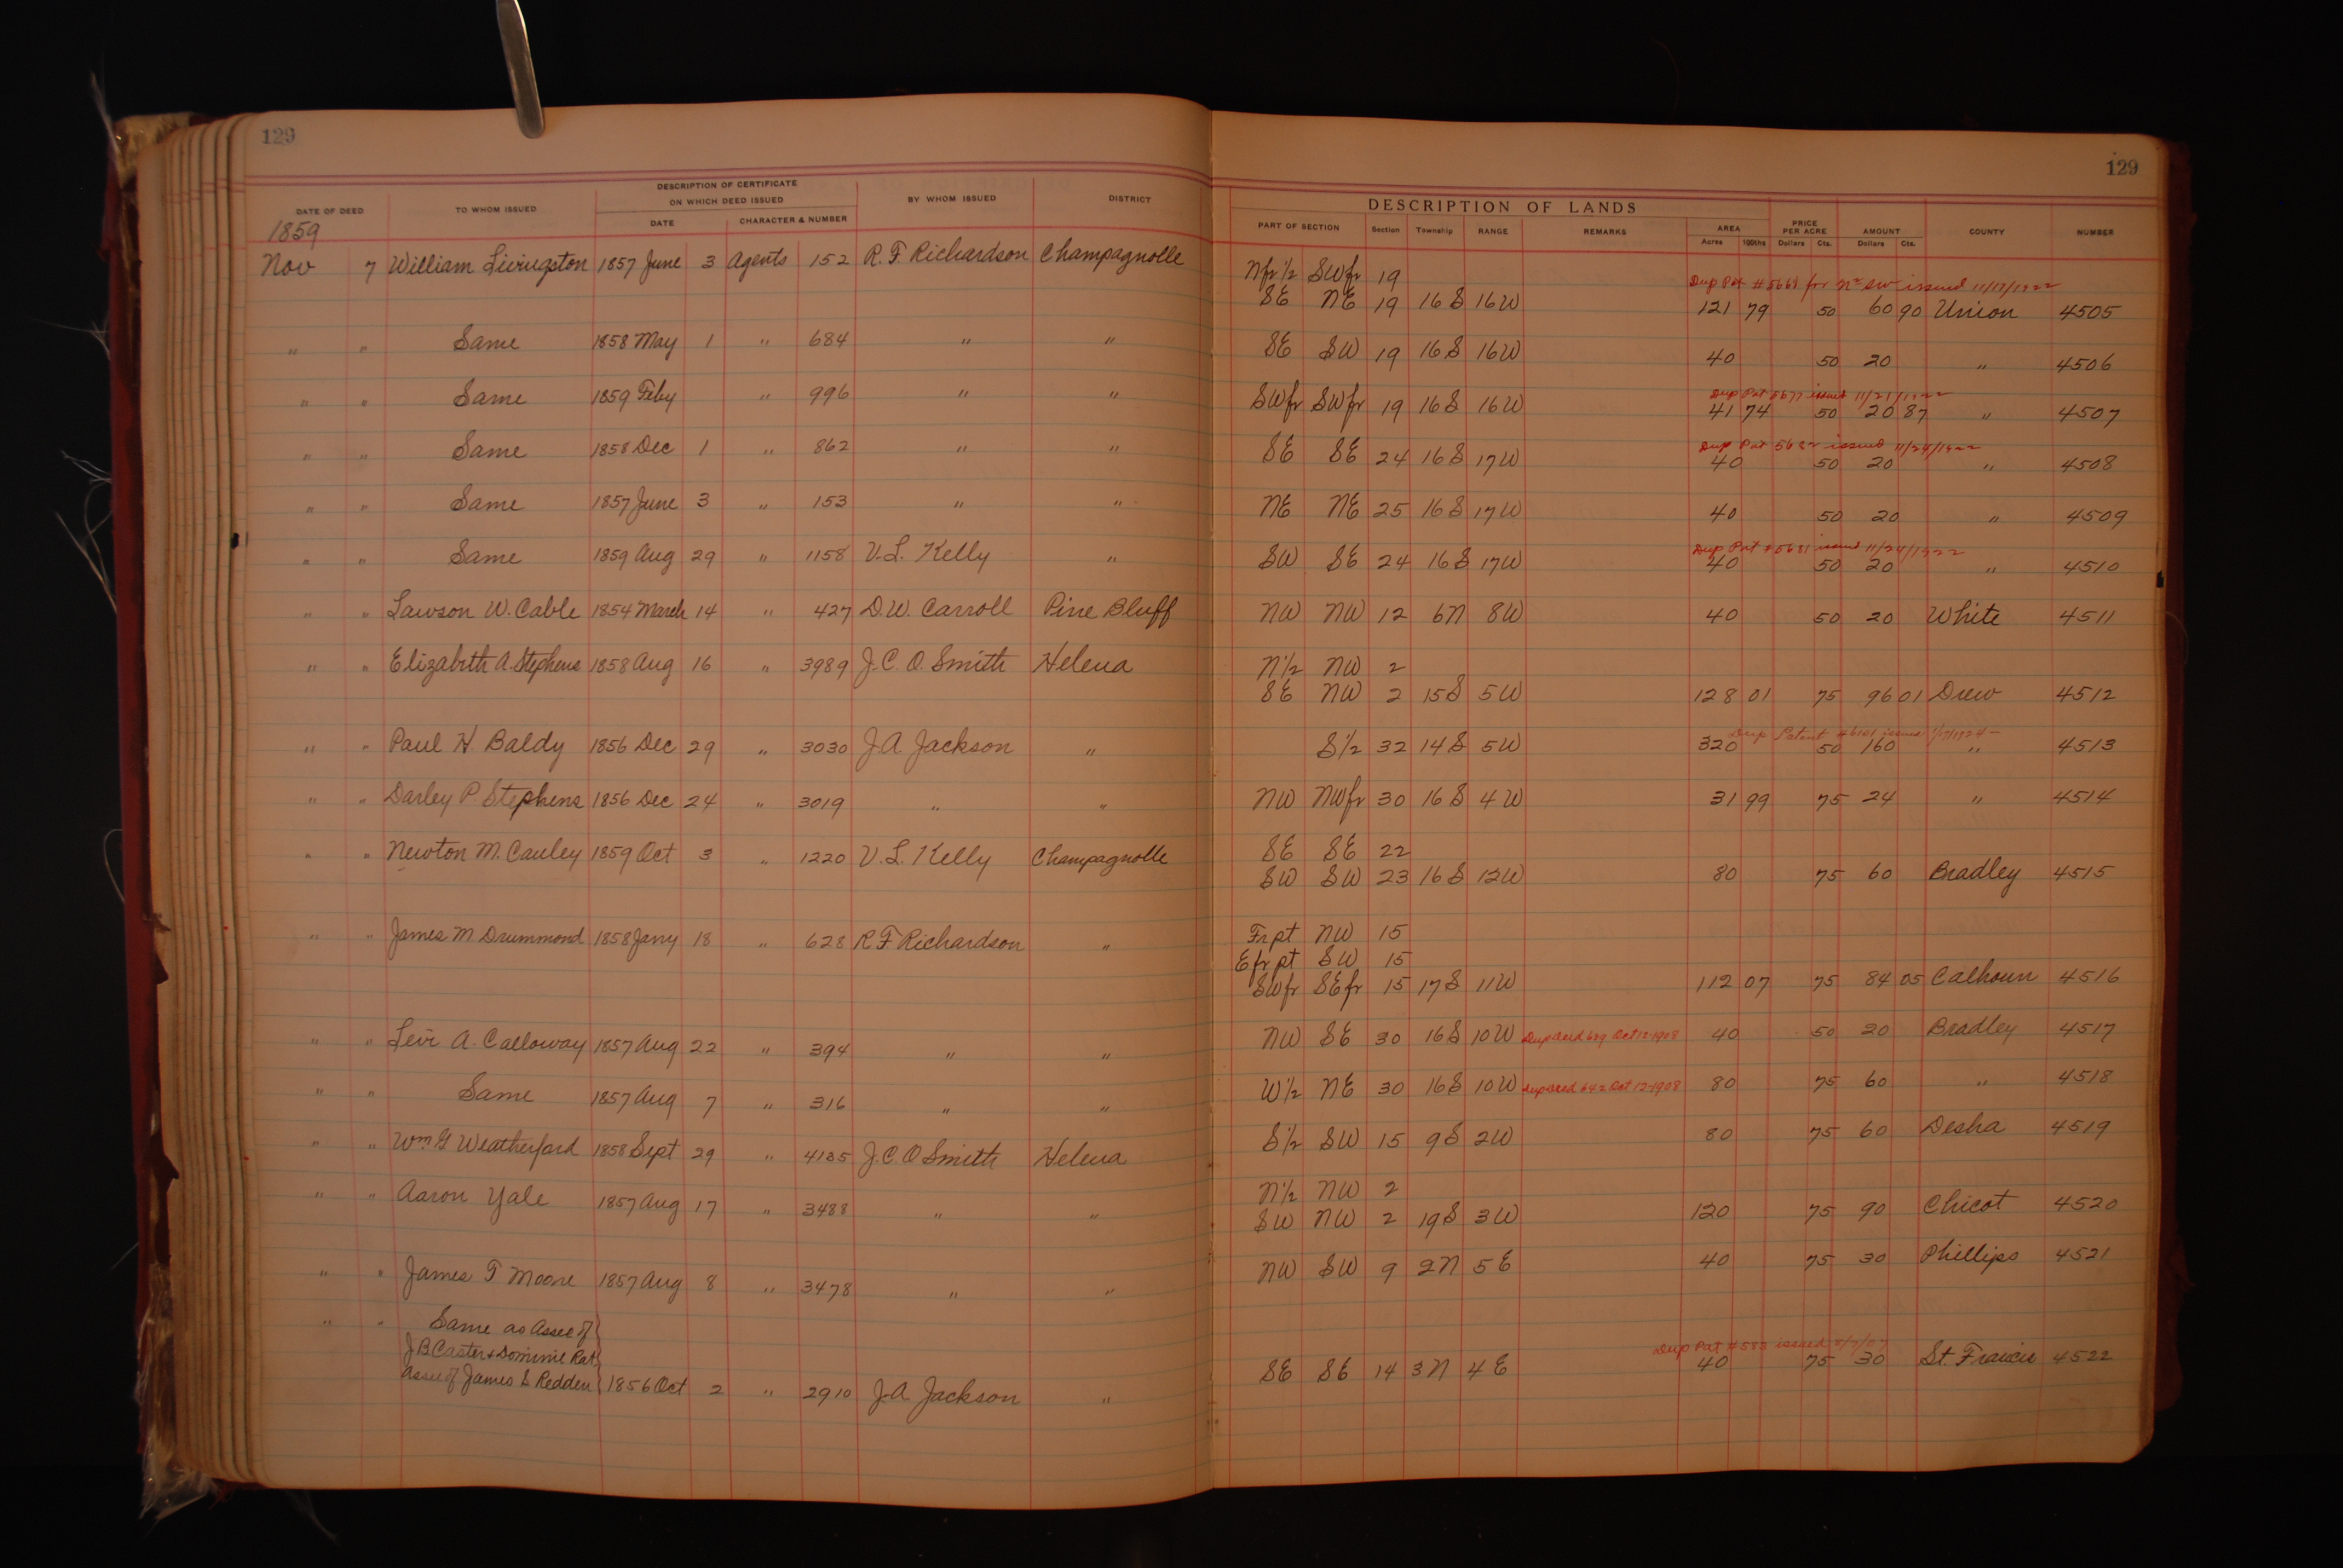 129
129
DATE OF DEED TO WHOM ISSUED DESCRIPTION OF CERTIFICATE ON WHICH DEED ISSUED BY WHOM ISSUED DISTRICT
DATE CHARACTER & NUMBER
DESCRIPTION OF LANDS PRICE PER ACRE AMOUNT COUNTY NUMBER
PART OF SECTION Section Township RANGE REMARKS AREA
Acres 100ths Dollars Cts. Dollars Cts.
1859
Nov 7 William Livingston 1857 June 3 Agents 152 R. F. Richardson Champagnolle Nfr 1/2 SWfr 19
Dup Pat issued 11/17/1922
SE NE 19 16 S 16 W 121 79 50 60 90 Union 4505
" " Same 1858 May 1 " 684 " " SE SW 19 16 S 16 W 40 50 20 " 4506
Dup Pat 5677 issued 11/21/1922
" " Same 1859 Feby " 996 " " SWfr SWfr 19 16 S 16 W 41 74 50 20 87 " 4507
Dup Pat 5682 issued 11/24/1922
" " Same 1858 Dec 1 " 862 " " SE SE 24 16 S 17 W 40 50 20 " 4508
" " Same 1857 June 3 " 153 " " NE NE 25 16 S 17 W 40 50 20 " 4509
Dup Pat #5681 issued 11/24/1922
" " Same 1859 Aug 29 " 1158 V. L. Kelly " SW SE 24 16 S 17 W 40 50 20 " 4510
" " Lawson W. Cable 1854 March 14 " 427 D. W. Carroll Pine Bluff NW NW 12 6 N 8 W 40 50 20 White 4511
" " Elizabeth A. Stephens 1858 Aug 16 " 3989 J. C. O. Smith Helena N 1/2 NW 2
SE NW 2 15 S 5 W 128 01 75 96 01 Drew 4512
Dup Patent issued
" " Paul H. Baldy 1856 Dec 29 " 3030 J. A. Jackson " S 1/2 32 14 S 5 W 320 50 160 " 4513
" " Darley P. Stephens 1856 Dec 24 " 3019 " " NW NWfr 30 16 S 4 W 31 99 75 24 " 4514
" " Newton M. Cauley 1859 Oct 3 " 1220 V. L. Kelly Champagnolle SE SE 22
SW SW 23 16 S 12 W 80 75 60 Bradley 4515
" " James M Drummond 1858 Jany 18 " 628 R F Richardson " Fr pt NW 15
E fr pt SW 15
SWfr SEfr 15 17 S 11 W 112 07 75 84 05 Calhoun 4516
" " Levi A. Calloway 1857 Aug 22 " 394 " " NW SE 30 16 S 10 W Dup deed Oct 12-1908 40 50 20 Bradley 4517
" " Same 1857 Aug 7 " 316 " " W 1/2 NE 30 16 S 10 W Dup deed 642 Oct 12-1908 80 75 60 " 4518
" " Wm G Weatherford 1858 Sept 29 " 4135 J. C. O Smith Helena S 1/2 SW 15 9 S 2 W 80 75 60 Desha 4519
" " Aaron Yale 1857 Aug 17 " 3488 " " N 1/2 NW 2
SW NW 2 19 S 3 W 120 75 90 Chicot 4520
" " James T Moore 1857 Aug 8 " 3478 " " NW SW 9 2 N 5 E 40 75 30 Phillips 4521
" " Same as Assee of
J B Caster & Dominie Rat
Dup Pat issued
Assee of James S Redden 1856 Oct 2 " 2910 J. A. Jackson " SE SE 14 3 N 4 E 40 75 30 St. Francis 4522